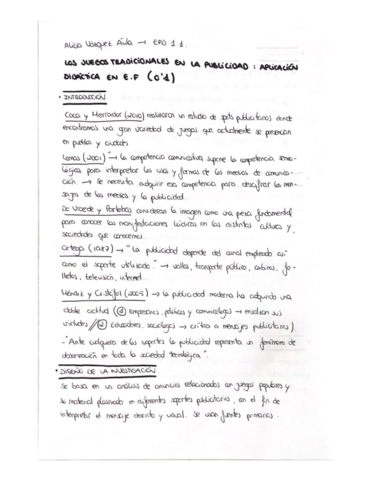 Alicia Vázquez Ávila → EPD 1.1.
LOS JUEGOS TRADICIONALES EN LA PUBLICIDAD : APLICACIÓN
DIDÁCTICA EN E.F (0'1)
· INTRODUCCIÓN
Coca y Herrador (2010) realizaron un estudio de spots publicitarios donde
encontramos una gran variedad de juegos que actualmente se presencian
en pueblos y ciudades
Lomas (2001) → "la competencia comunicativa supone la competencia semio-
lógica para interpretar los usos y formas de los medios de comunica-
ción → Se necesita adquirir esa competencia para descifrar los men-
sajes de los medios y la publicidad.
De Waede y Portebos consideran la imagen como una pieza fundamental
para conocer las manifestaciones lúdicas en las distintas culturas y
sociedades que conocemos.
Ortega (1987) → "La publicidad depende del canal empleado así
como el soporte utilizado" → vallas, transporte público, cabinas, fo-
lletos, televisión, internet...
Méndiz y Cristofol (2005) → la publicidad moderna ha adquirido una
doble actitud (① empresarios, políticos y comunicólogos → ensalzan sus
virtudes // ② educadores, sociólogos → crítica a mensajes publicitarios).
"Ante cualquiera de los soportes la publicidad representa un fenómeno de
observación en toda la sociedad tecnológica".
· DISEÑO DE LA INVESTIGACIÓN
Se basa en un análisis de anuncios relacionados con juegos populares y
su material plasmado en diferentes soportes publicitarios, con el fin de
interpretar el mensaje descrito y visual. Se usan fuentes primarias.